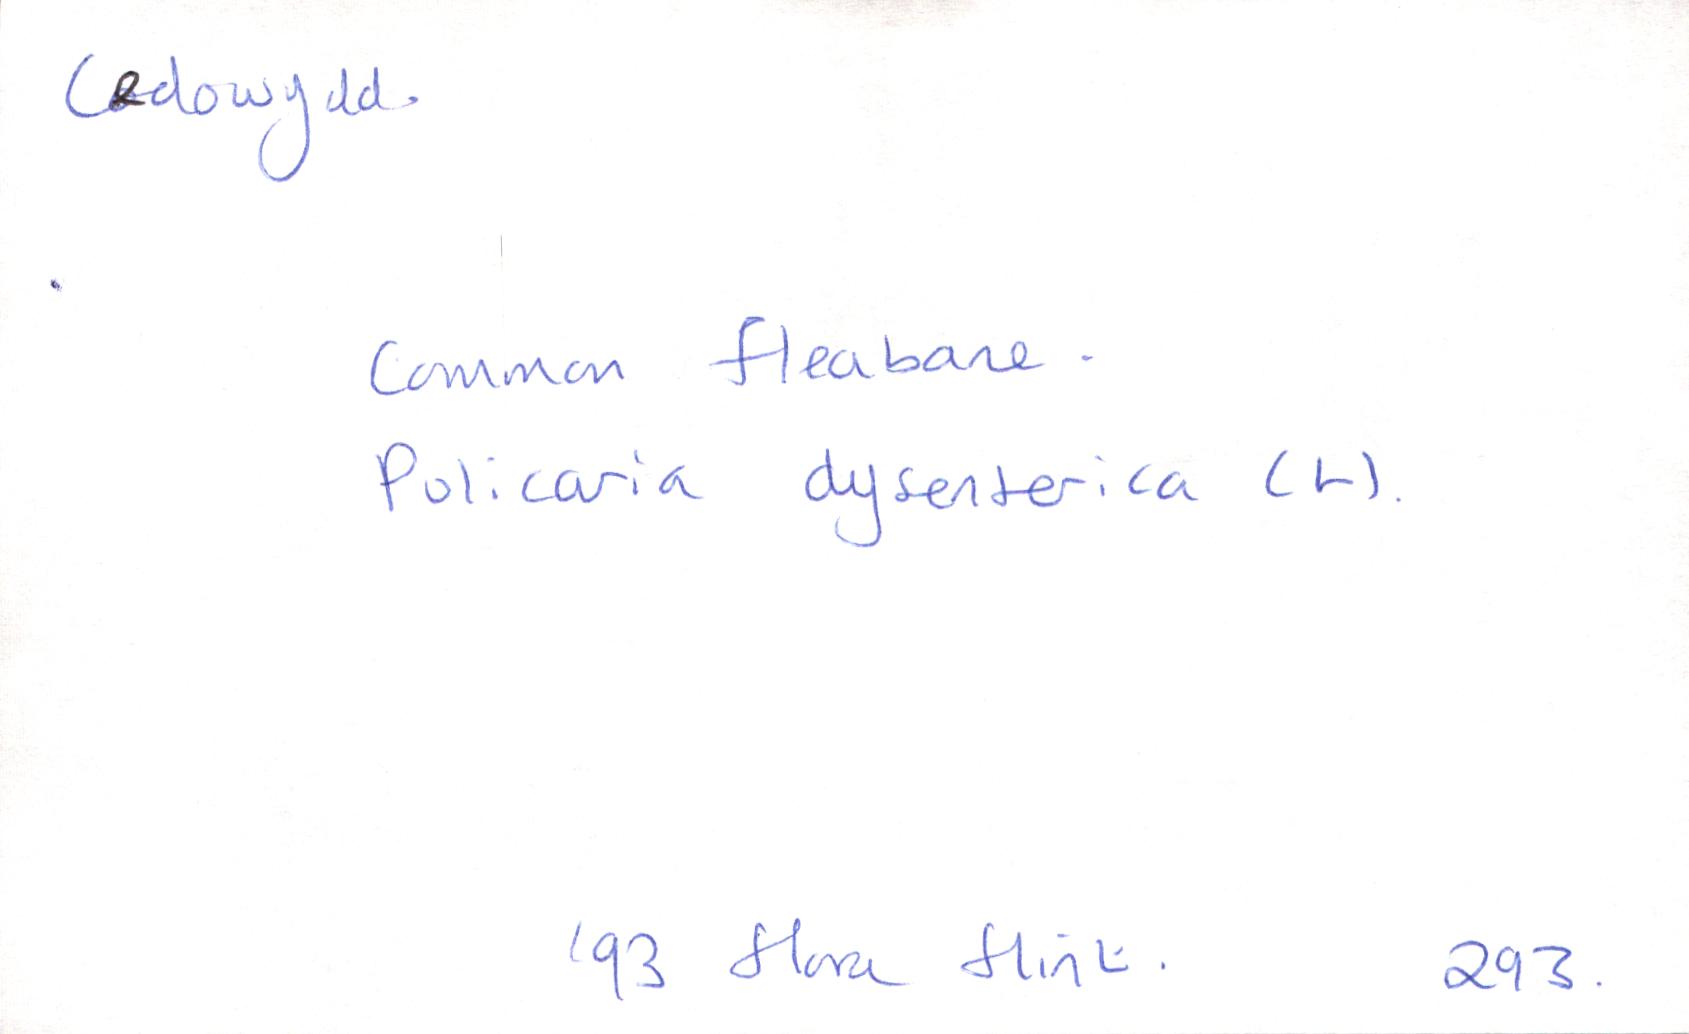 Cedowydd.
Common fleabane.
Pulicaria dysenterica (L).
'93 flora flint. 293.